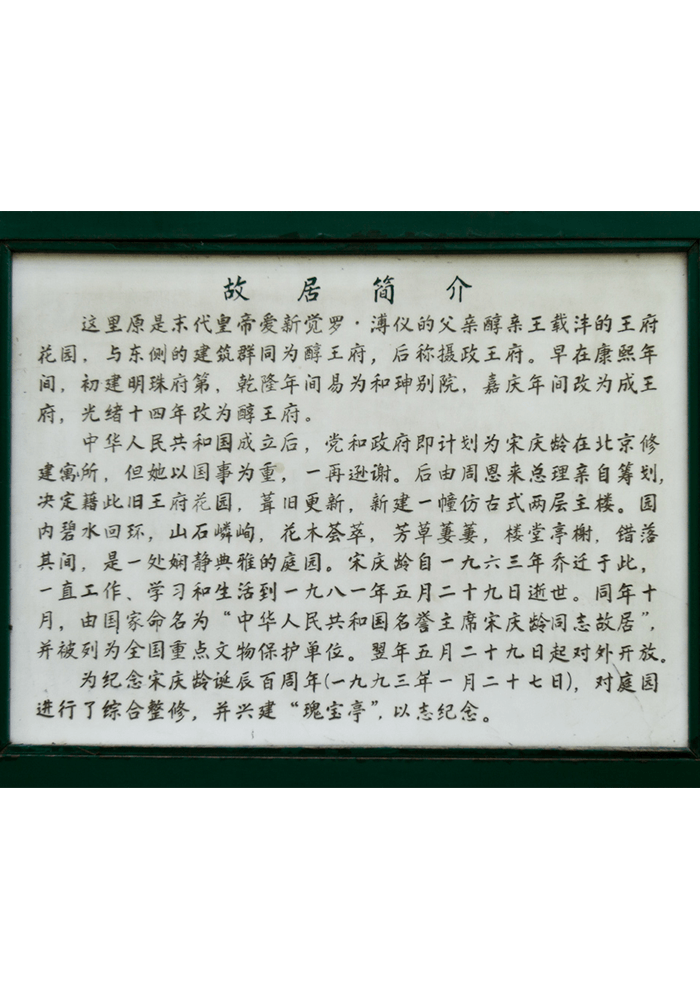 故居简介
这里原是末代皇帝爱新觉罗·溥仪的父亲醇亲王载沣的王府
花园，与东侧的建筑群同为醇王府，后称摄政王府。早在康熙年
间，初建明珠府第，乾隆年间易为和珅别院，嘉庆年间改为成王
府，光绪十四年改为醇王府。
中华人民共和国成立后，党和政府即计划为宋庆龄在北京修
建寓所，但她以国事为重，一再逊谢。后由周恩来总理亲自筹划，
决定藉此旧王府花园，葺旧更新，新建一幢仿古式两层主楼。园
内碧水回环，山石嶙峋，花木荟萃，芳草萋萋，楼堂亭榭，错落
其间，是一处娴静典雅的庭园。宋庆龄自一九六三年乔迁于此，
一直工作、学习和生活到一九八一年五月二十九日逝世。同年十
月，由国家命名为“中华人民共和国名誉主席宋庆龄同志故居”，
并被列为全国重点文物保护单位。翌年五月二十九日起对外开放。
为纪念宋庆龄诞辰百周年(一九九三年一月二十七日)，对庭园
进行了综合整修，并兴建“瑰宝亭”，以志纪念。